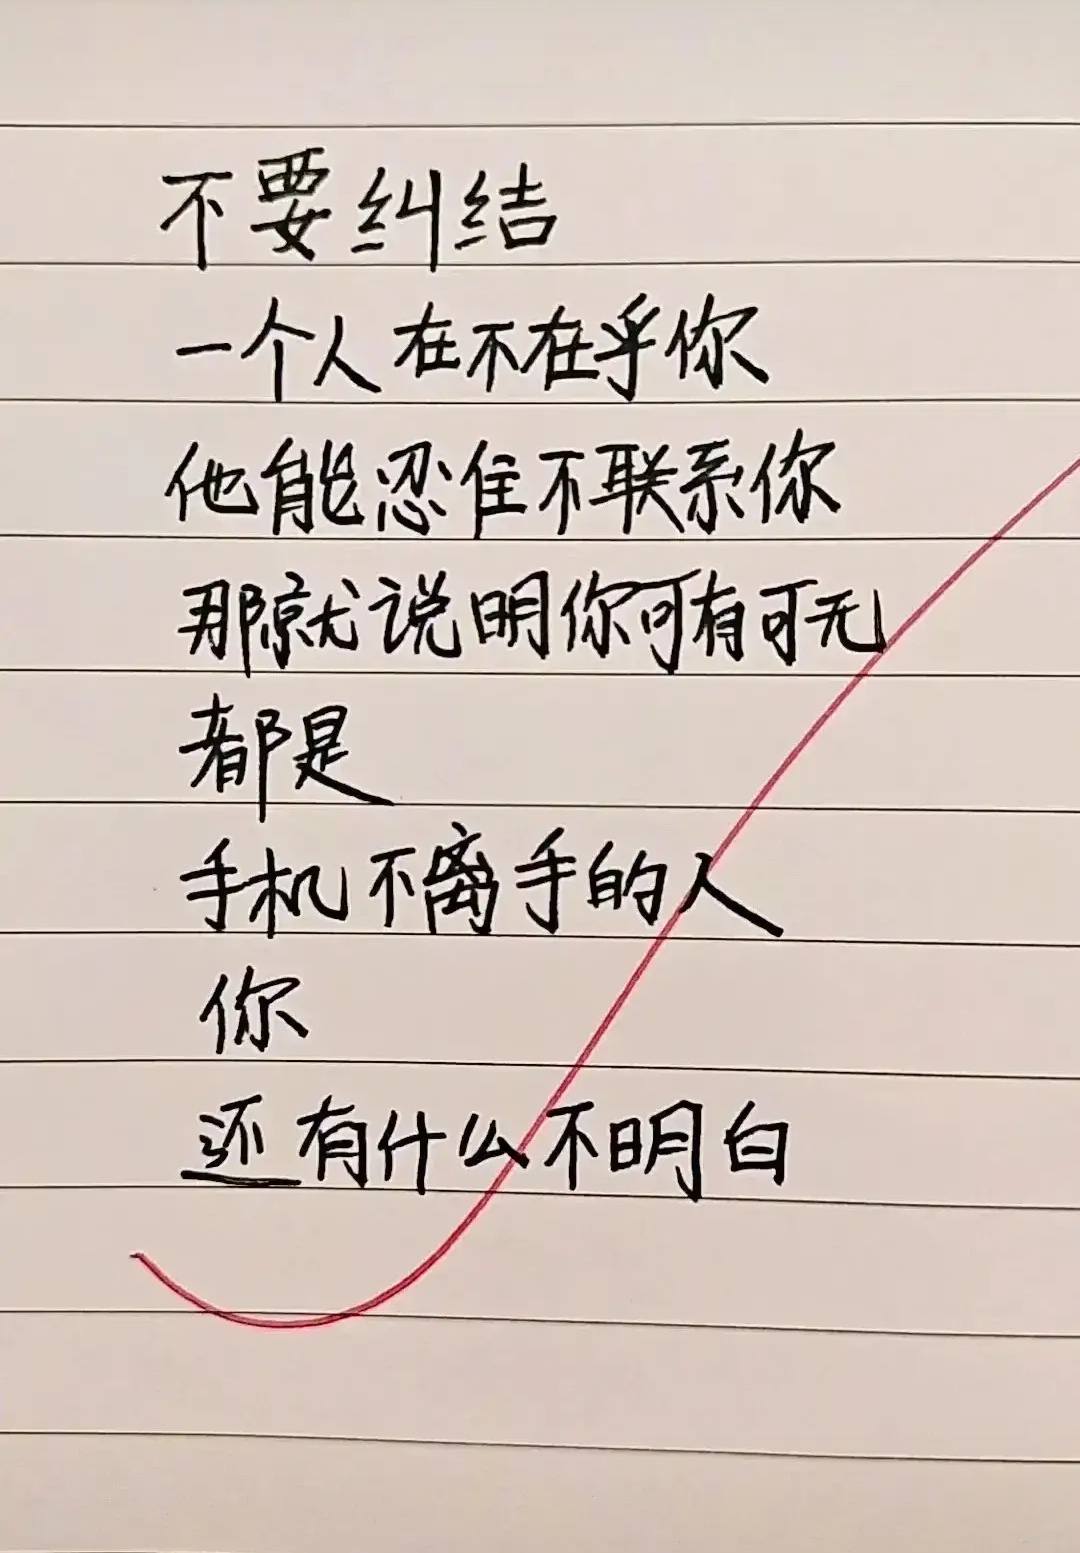 不要纠结
一个人在不在乎你
他能忍住不联系你
那就说明你可有可无
都是
手机不离手的人
你
还有什么不明白